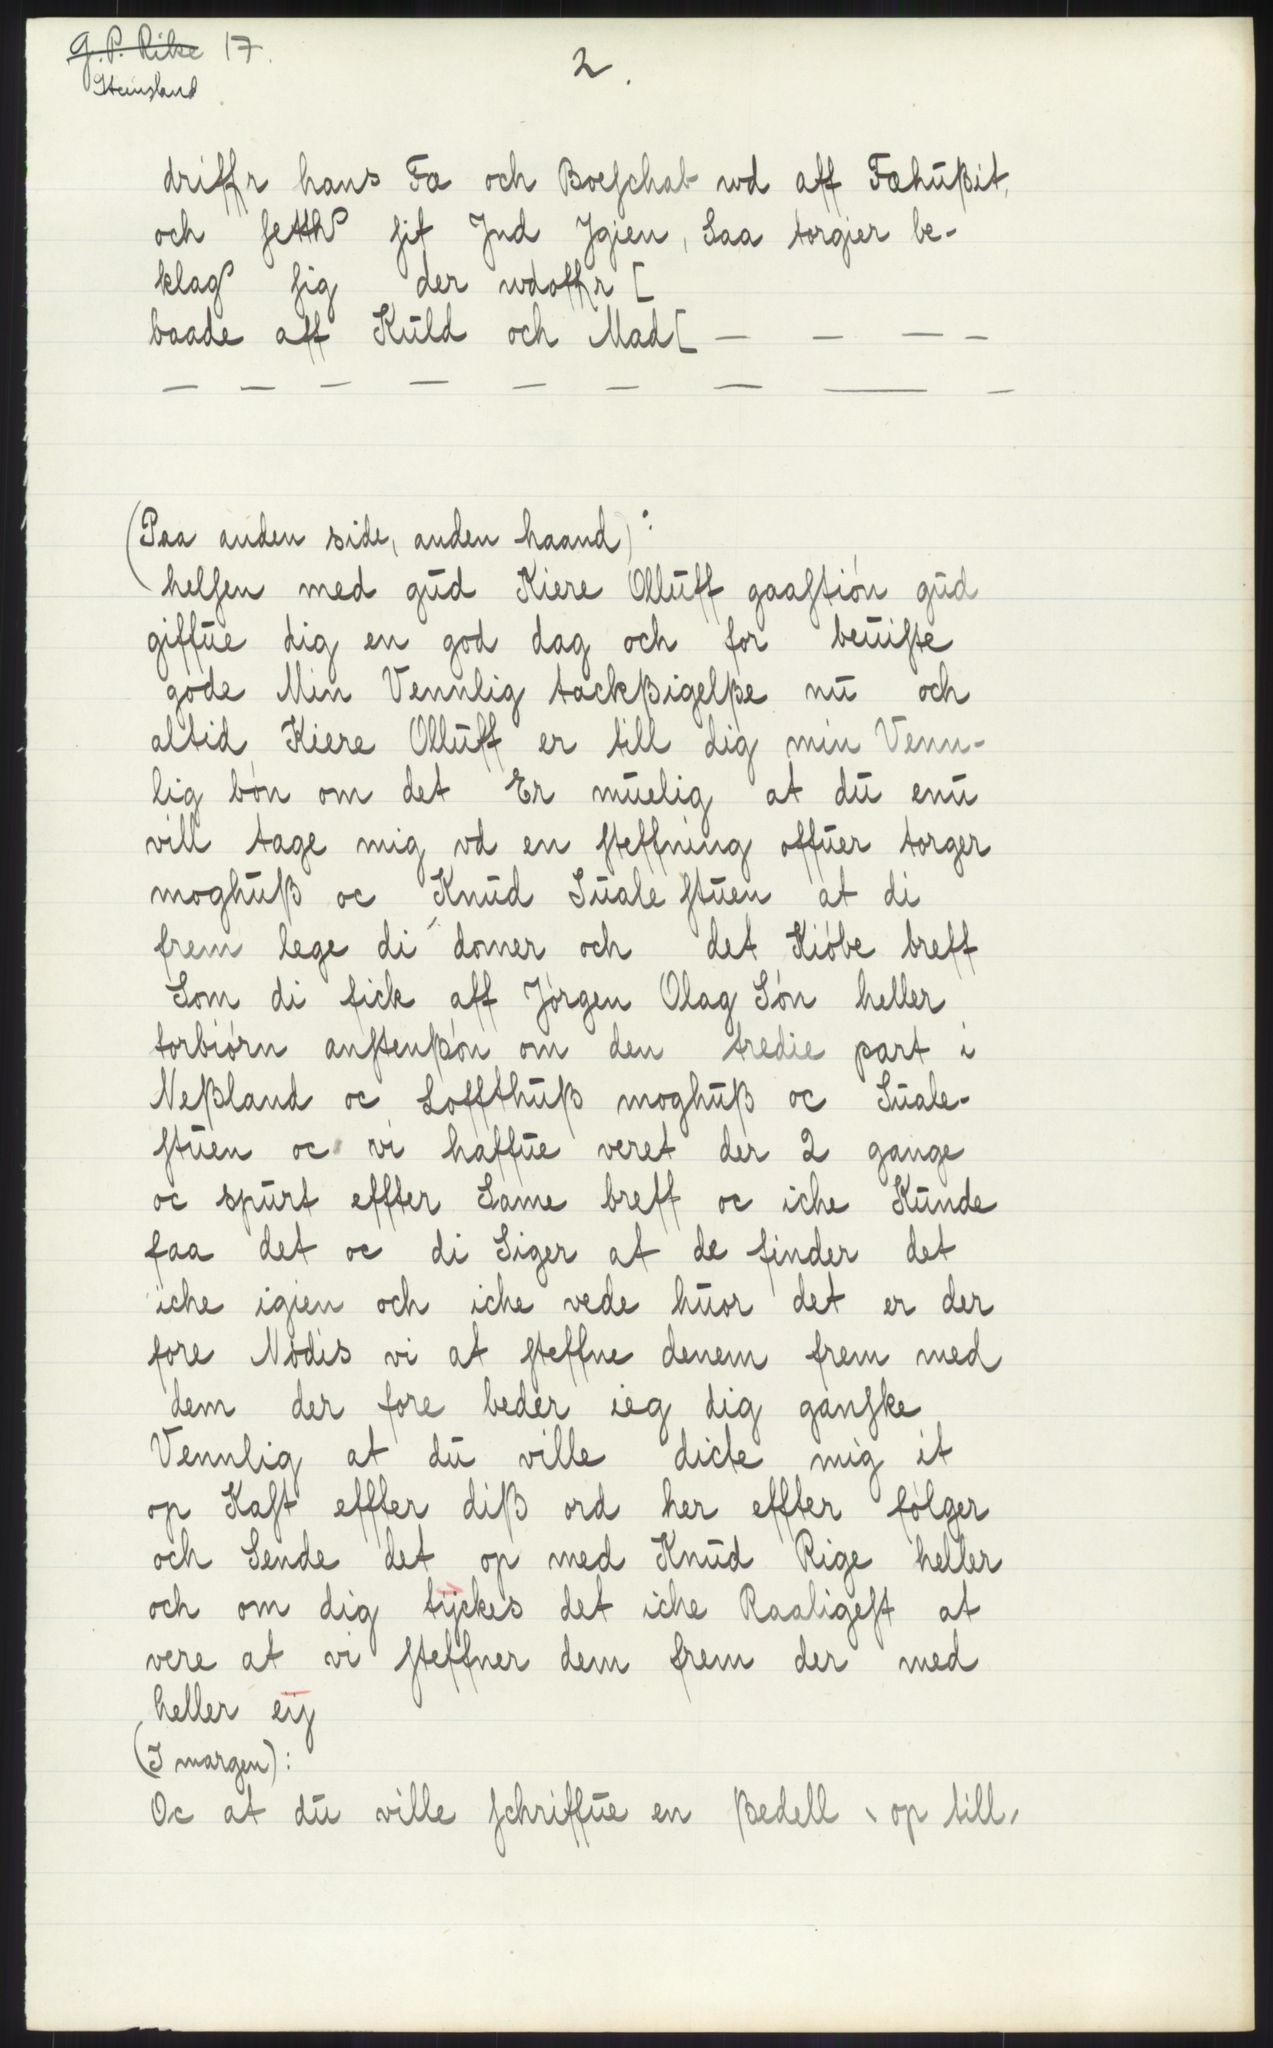 G. P. Rike 17.
Steinsland
2.
driffr hans Fæ och Boeschab wd aff Fæhußit,
och setth sit Jnd Jgien, Saa torgier be-
klag sig der wdoffr [
baade aff Kuld och Mad [ — — — —
— — — — — — — — —
(Paa anden side, anden haand):
helsen med gud Kiere Olluff gaastión gud
giffue dig en god dag och for beuiste
gode Min Vennlig tackßigelße nu och
altid Kiere Olluff er till dig min Venn-
lig bón om det Er muelig at du enu
vill tage mig vd en steffning offuer torger
moghuß oc Knud Suale stuen at di
frem lege di domer och det Kióbe breff
Som di fick aff Jórgen Olag Són heller
torbiórn anstenßón om den tredie part i
Neßland oc Loffthuß moghuß oc Suale-
stuen oc vi haffue veret der 2 gange
oc spurt effter Same breff oc iche Kunde
faa det oc di Siger at de finder det
iche igien och iche vede huor det er der
fore Nódis vi at steffne denem frem med
dem der fore beder ieg dig ganske
Vennlig at du ville dicte mig it
op Kast effter diß ord her effter fólger
och Sende det op med Knud Rige heller
och om dig tÿckes det iche Raaligest at
vere at vi steffner dem frem der med
heller eÿ
(I margen):
Oc at du ville schriffue en ßedell op till,